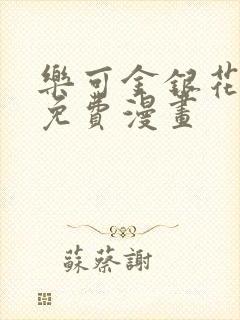 樂可金銀花
免費漫畫
蘇蔡謝